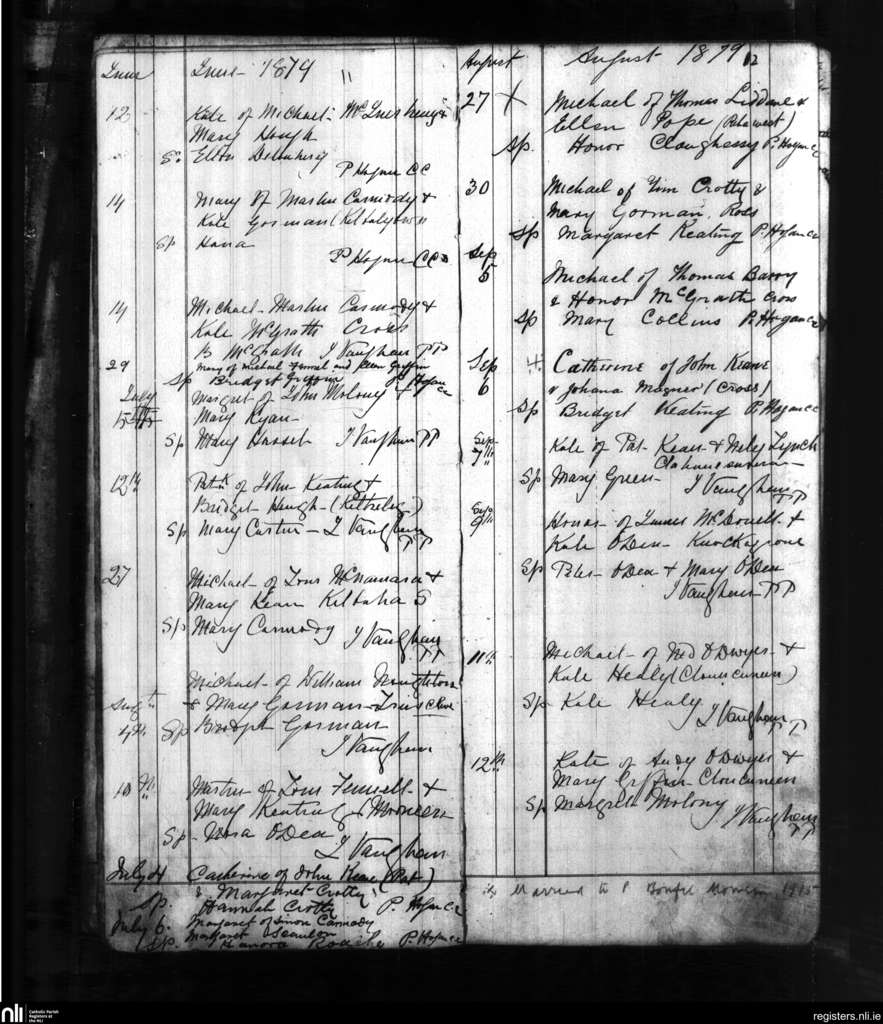 June June 1879 "
12 Kate of Michael McInerheny &
Mary Hough
Sp. Ellen
P Hogan CC
14 Mary of Martin Carmody &
Kate Gorman (Kilbalyowen
Sp Hana
P Hogan CC
14 Michael Martin Carmody &
Kate McGrath Cross
B McGrath J Vaughan PP
29 Mary of Michael Fennel and Griffin
Sp Bridget P Hogan CC
July Margret of John Molony &
15 Mary Ryan
Sp Mary J Vaughan PP
12th Patk of John Keating &
Bridget Haugh
Sp Mary Carter J Vaughan
PP
27 Michael of McNamara &
Mary Kean Kilbaha S
Sp Mary Carmody J Vaughan
PP
Michael of William Naughton
& Mary Gorman
4th Sp Bridget Gorman
J Vaughan
10th Martin of Fennell &
Mary Keating (Mooneen
Sp Nora O Dea
J Vaughan
July 4 Catherine of John Keane (Pat)
& Margaret Crotty
Sp. Hannah Crotty P. Hogan CC
July 6. Margaret of Simon Carmody
Margaret Scanlon
Sp. Hanora Roache P. Hogan CC
August August 1879 12
27 X Michael of Thomas Liddane &
Ellen Pope (Rehawest)
Sp. Honor Cloughessy P. Hogan CC
30 Michael of Tim Crotty &
Mary Gorman. Ross
Sp Margaret Keating P. Hogan CC
Sep
5 Michael of Thomas Barry
& Honor McGrath Cross
Sp Mary Collins P. Hogan CC
Sep + Catherine of John Keane
6 & Johana Magner (Cross)
Sp Bridget Keating P. Hogan CC
Sep
7th Kate of Pat Kean & Lynch
Sp Mary Green
J Vaughan
PP
Sep
9th Honor of James McDonell &
Kate O Dea Knockagrone
Sp Peter O Dea & Mary O Dea
J Vaughan PP
11th Michael of Ned O Dwyer &
Kate Healy (Clouncuneen)
Sp Kate Healy
J Vaughan
PP
12th Kate of Andy O Dwyer &
Mary Griffin Clouncuneen
Sp Margret Molony
J Vaughan
PP
Married to P
nli Catholic Parish
Registers at
the NLI
registers.nli.ie